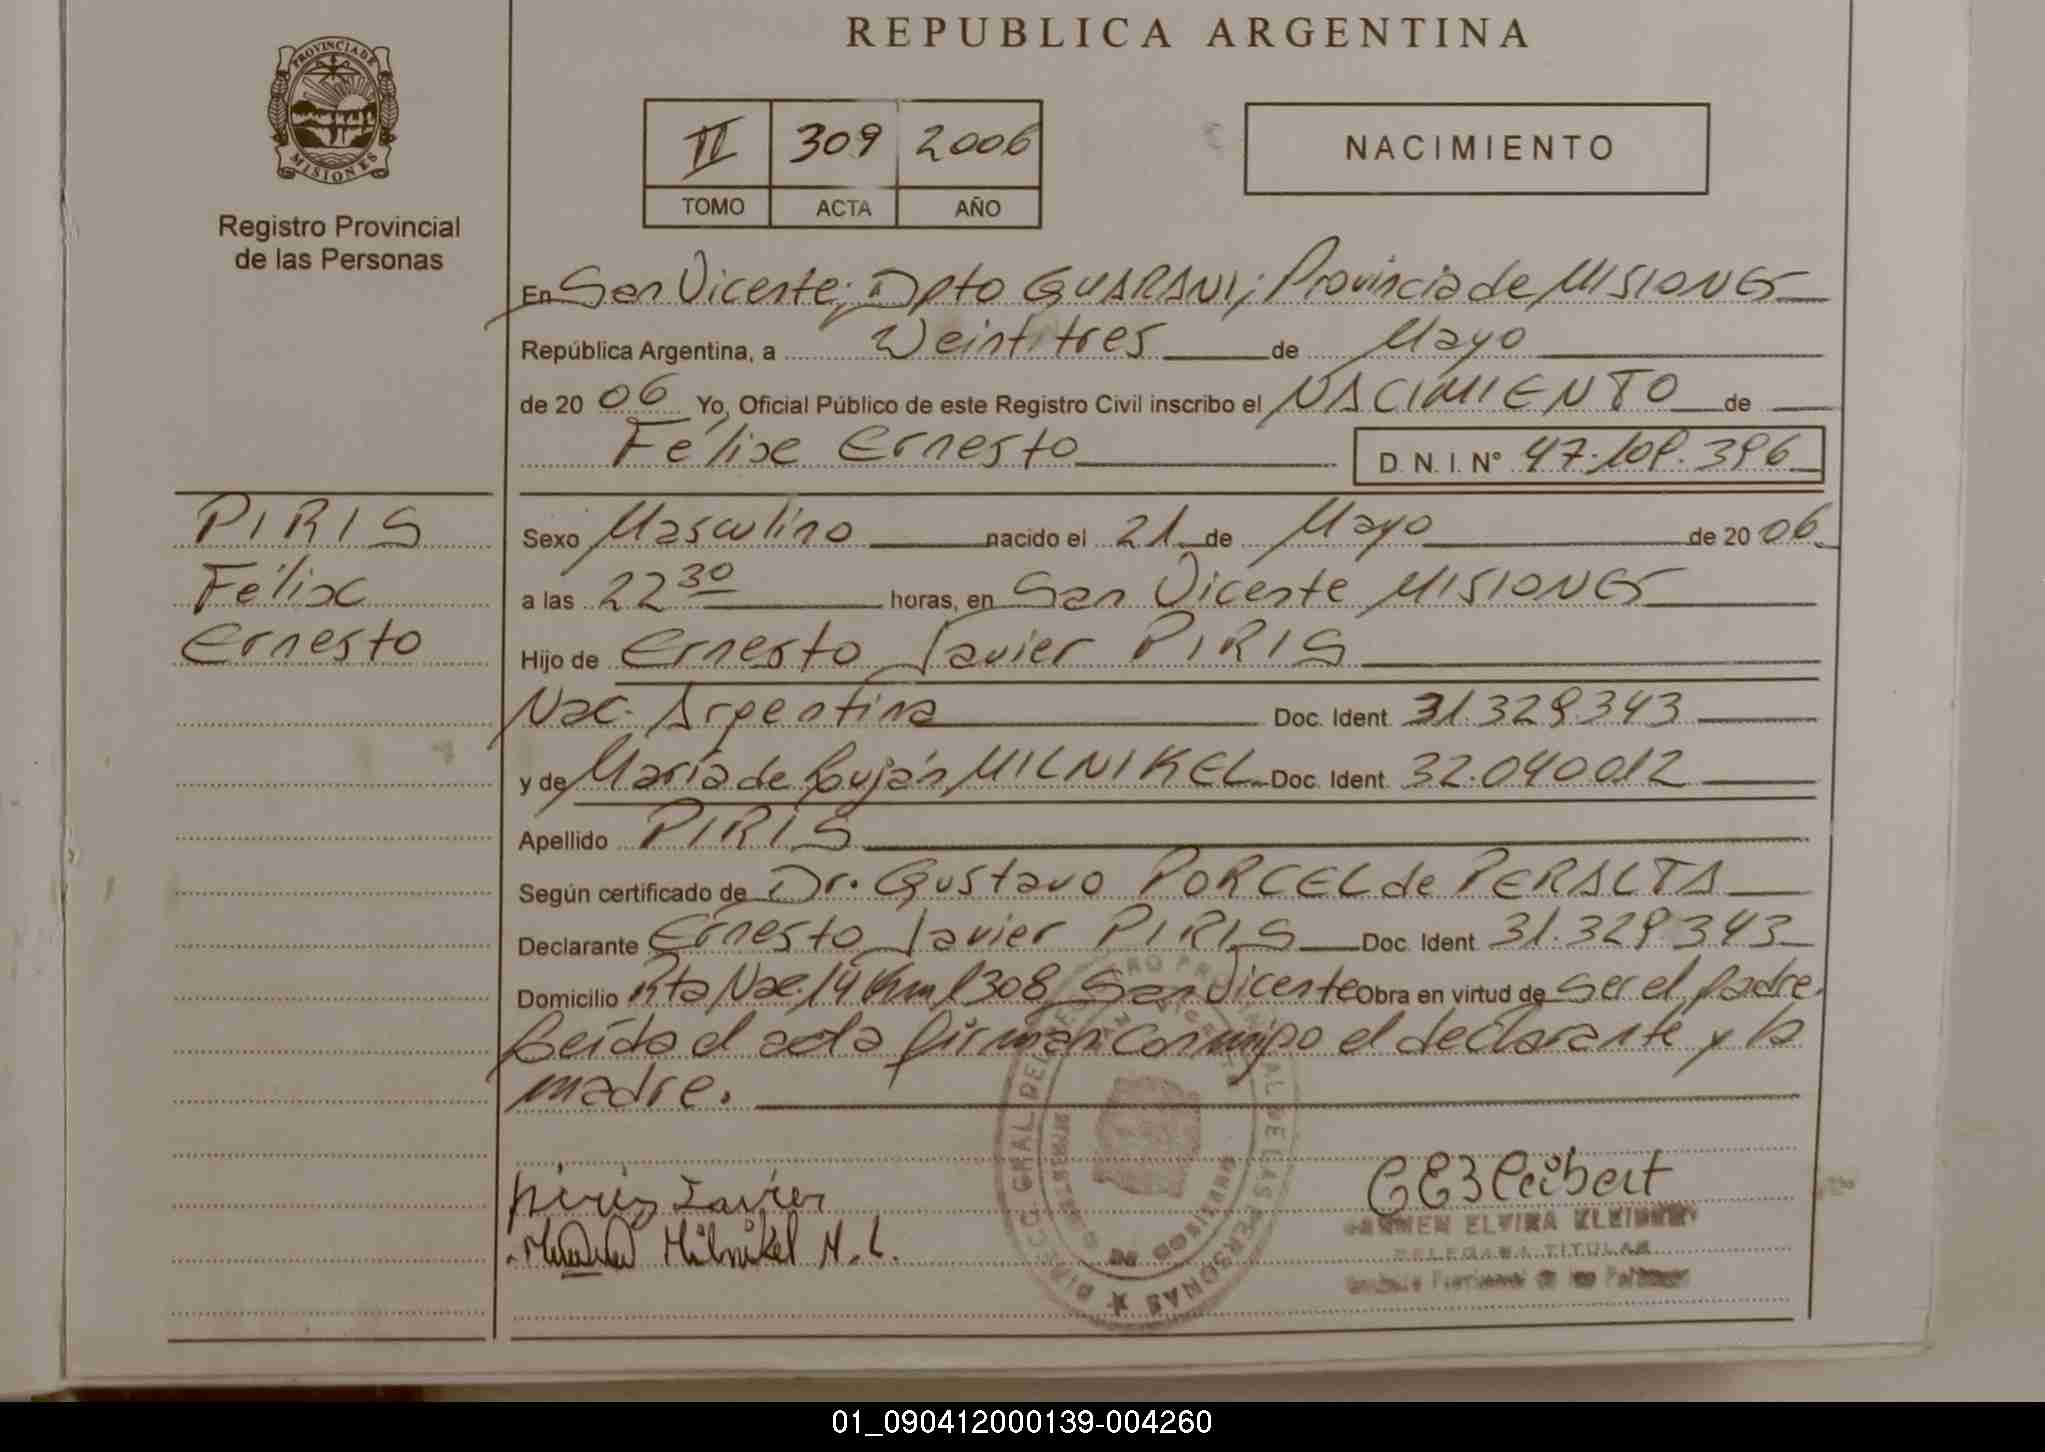 REPUBLICA ARGENTINA
PROVINCIA DE
MISIONES
Registro Provincial
de las Personas
II 309 2006
TOMO ACTA AÑO
NACIMIENTO
En San Vicente; Dpto GUARANI; Provincia de MISIONES
República Argentina, a Veintitres de Mayo
de 20 06 Yo, Oficial Público de este Registro Civil inscribo el NACIMIENTO de
Félix Ernesto D. N. I. N°
PIRIS
Félix
Ernesto
Sexo Masculino nacido el 21 de Mayo de 20 06
a las 22 30 horas, en San Vicente MISIONES
Hijo de Ernesto Javier PIRIS
Nac. Argentina Doc. Ident. 31.329.343
y de María de Luján MILNIKEL Doc. Ident. 32.040.012
Apellido PIRIS
Según certificado de Dr. Gustavo PORCEL de PERALTA
Declarante Ernesto Javier PIRIS Doc. Ident. 31.329.343
Domicilio Rta Nac. 14 Km 1308 San Vicente Obra en virtud de Ser el padre.
Leída el acta firman conmigo el declarante y la
madre.
piris Javier
Milnikel M. L.
CARMEN ELVIRA
TITULAR
DE LAS PERSONAS
01_090412000139-004260